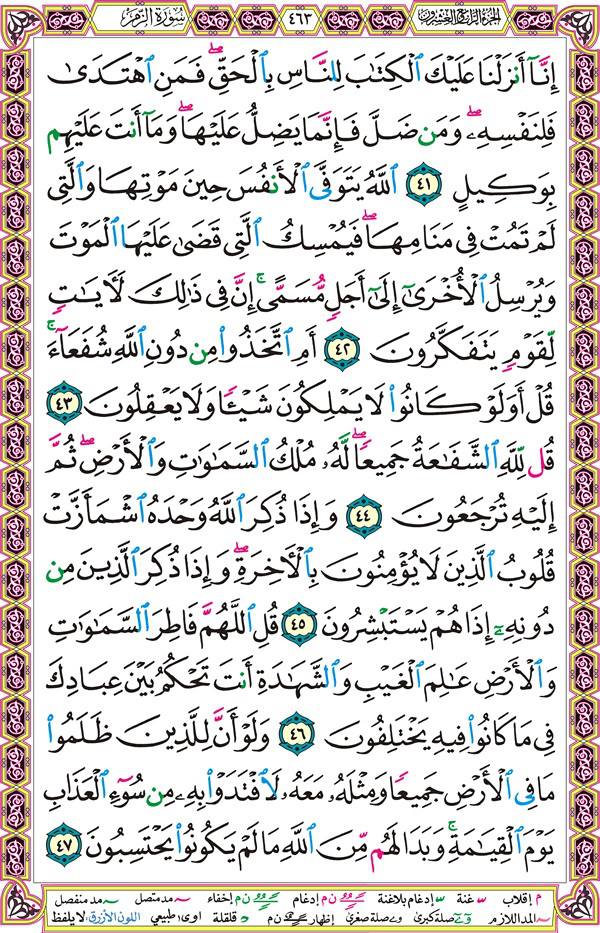 الجزء الرابع والعشرون ٤٦٣ سُورَةُ الزُّمَرِ
إِنَّآ أَنزَلۡنَا عَلَيۡكَ ٱلۡكِتَٰبَ لِلنَّاسِ بِٱلۡحَقِّۖ فَمَنِ ٱهۡتَدَىٰ
فَلِنَفۡسِهِۦۖ وَمَن ضَلَّ فَإِنَّمَا يَضِلُّ عَلَيۡهَاۖ وَمَآ أَنتَ عَلَيۡهِم
بِوَكِيلٍ ٤١ ٱللَّهُ يَتَوَفَّى ٱلۡأَنفُسَ حِينَ مَوۡتِهَا وَٱلَّتِي
لَمۡ تَمُتۡ فِي مَنَامِهَاۖ فَيُمۡسِكُ ٱلَّتِي قَضَىٰ عَلَيۡهَا ٱلۡمَوۡتَ
وَيُرۡسِلُ ٱلۡأُخۡرَىٰٓ إِلَىٰٓ أَجَلٖ مُّسَمًّىۚ إِنَّ فِي ذَٰلِكَ لَأٓيَٰتٖ
لِّقَوۡمٖ يَتَفَكَّرُونَ ٤٢ أَمِ ٱتَّخَذُواْ مِن دُونِ ٱللَّهِ شُفَعَآءَۚ
قُلۡ أَوَلَوۡ كَانُواْ لَا يَمۡلِكُونَ شَيۡـٔٗا وَلَا يَعۡقِلُونَ ٤٣
قُل لِّلَّهِ ٱلشَّفَٰعَةُ جَمِيعٗاۖ لَّهُۥ مُلۡكُ ٱلسَّمَٰوَٰتِ وَٱلۡأَرۡضِۖ ثُمَّ
إِلَيۡهِ تُرۡجَعُونَ ٤٤ وَإِذَا ذُكِرَ ٱللَّهُ وَحۡدَهُ ٱشۡمَأَزَّتۡ
قُلُوبُ ٱلَّذِينَ لَا يُؤۡمِنُونَ بِٱلۡأٓخِرَةِۖ وَإِذَا ذُكِرَ ٱلَّذِينَ مِن
دُونِهِۦٓ إِذَا هُمۡ يَسۡتَبۡشِرُونَ ٤٥ قُلِ ٱللَّهُمَّ فَاطِرَ ٱلسَّمَٰوَٰتِ
وَٱلۡأَرۡضِ عَٰلِمَ ٱلۡغَيۡبِ وَٱلشَّهَٰدَةِ أَنتَ تَحۡكُمُ بَيۡنَ عِبَادِكَ
فِي مَا كَانُواْ فِيهِ يَخۡتَلِفُونَ ٤٦ وَلَوۡ أَنَّ لِلَّذِينَ ظَلَمُواْ
مَا فِي ٱلۡأَرۡضِ جَمِيعٗا وَمِثۡلَهُۥ مَعَهُۥ لَٱفۡتَدَوۡاْ بِهِۦ مِن سُوٓءِ ٱلۡعَذَابِ
يَوۡمَ ٱلۡقِيَٰمَةِۚ وَبَدَا لَهُم مِّنَ ٱللَّهِ مَا لَمۡ يَكُونُواْ يَحۡتَسِبُونَ ٤٧
م إقلاب غنة إدغام بلاغنة ن م إدغام ن م إخفاء مد متصل مد منفصل
المد اللازم صلة كبرى صلة صغرى إظهار ن م قلقلة اوى؛ طبيعي اللون الأزرق: لا يلفظ